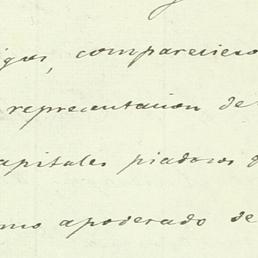 comparecieron
representacion de
capitales piadosos
como apoderado de